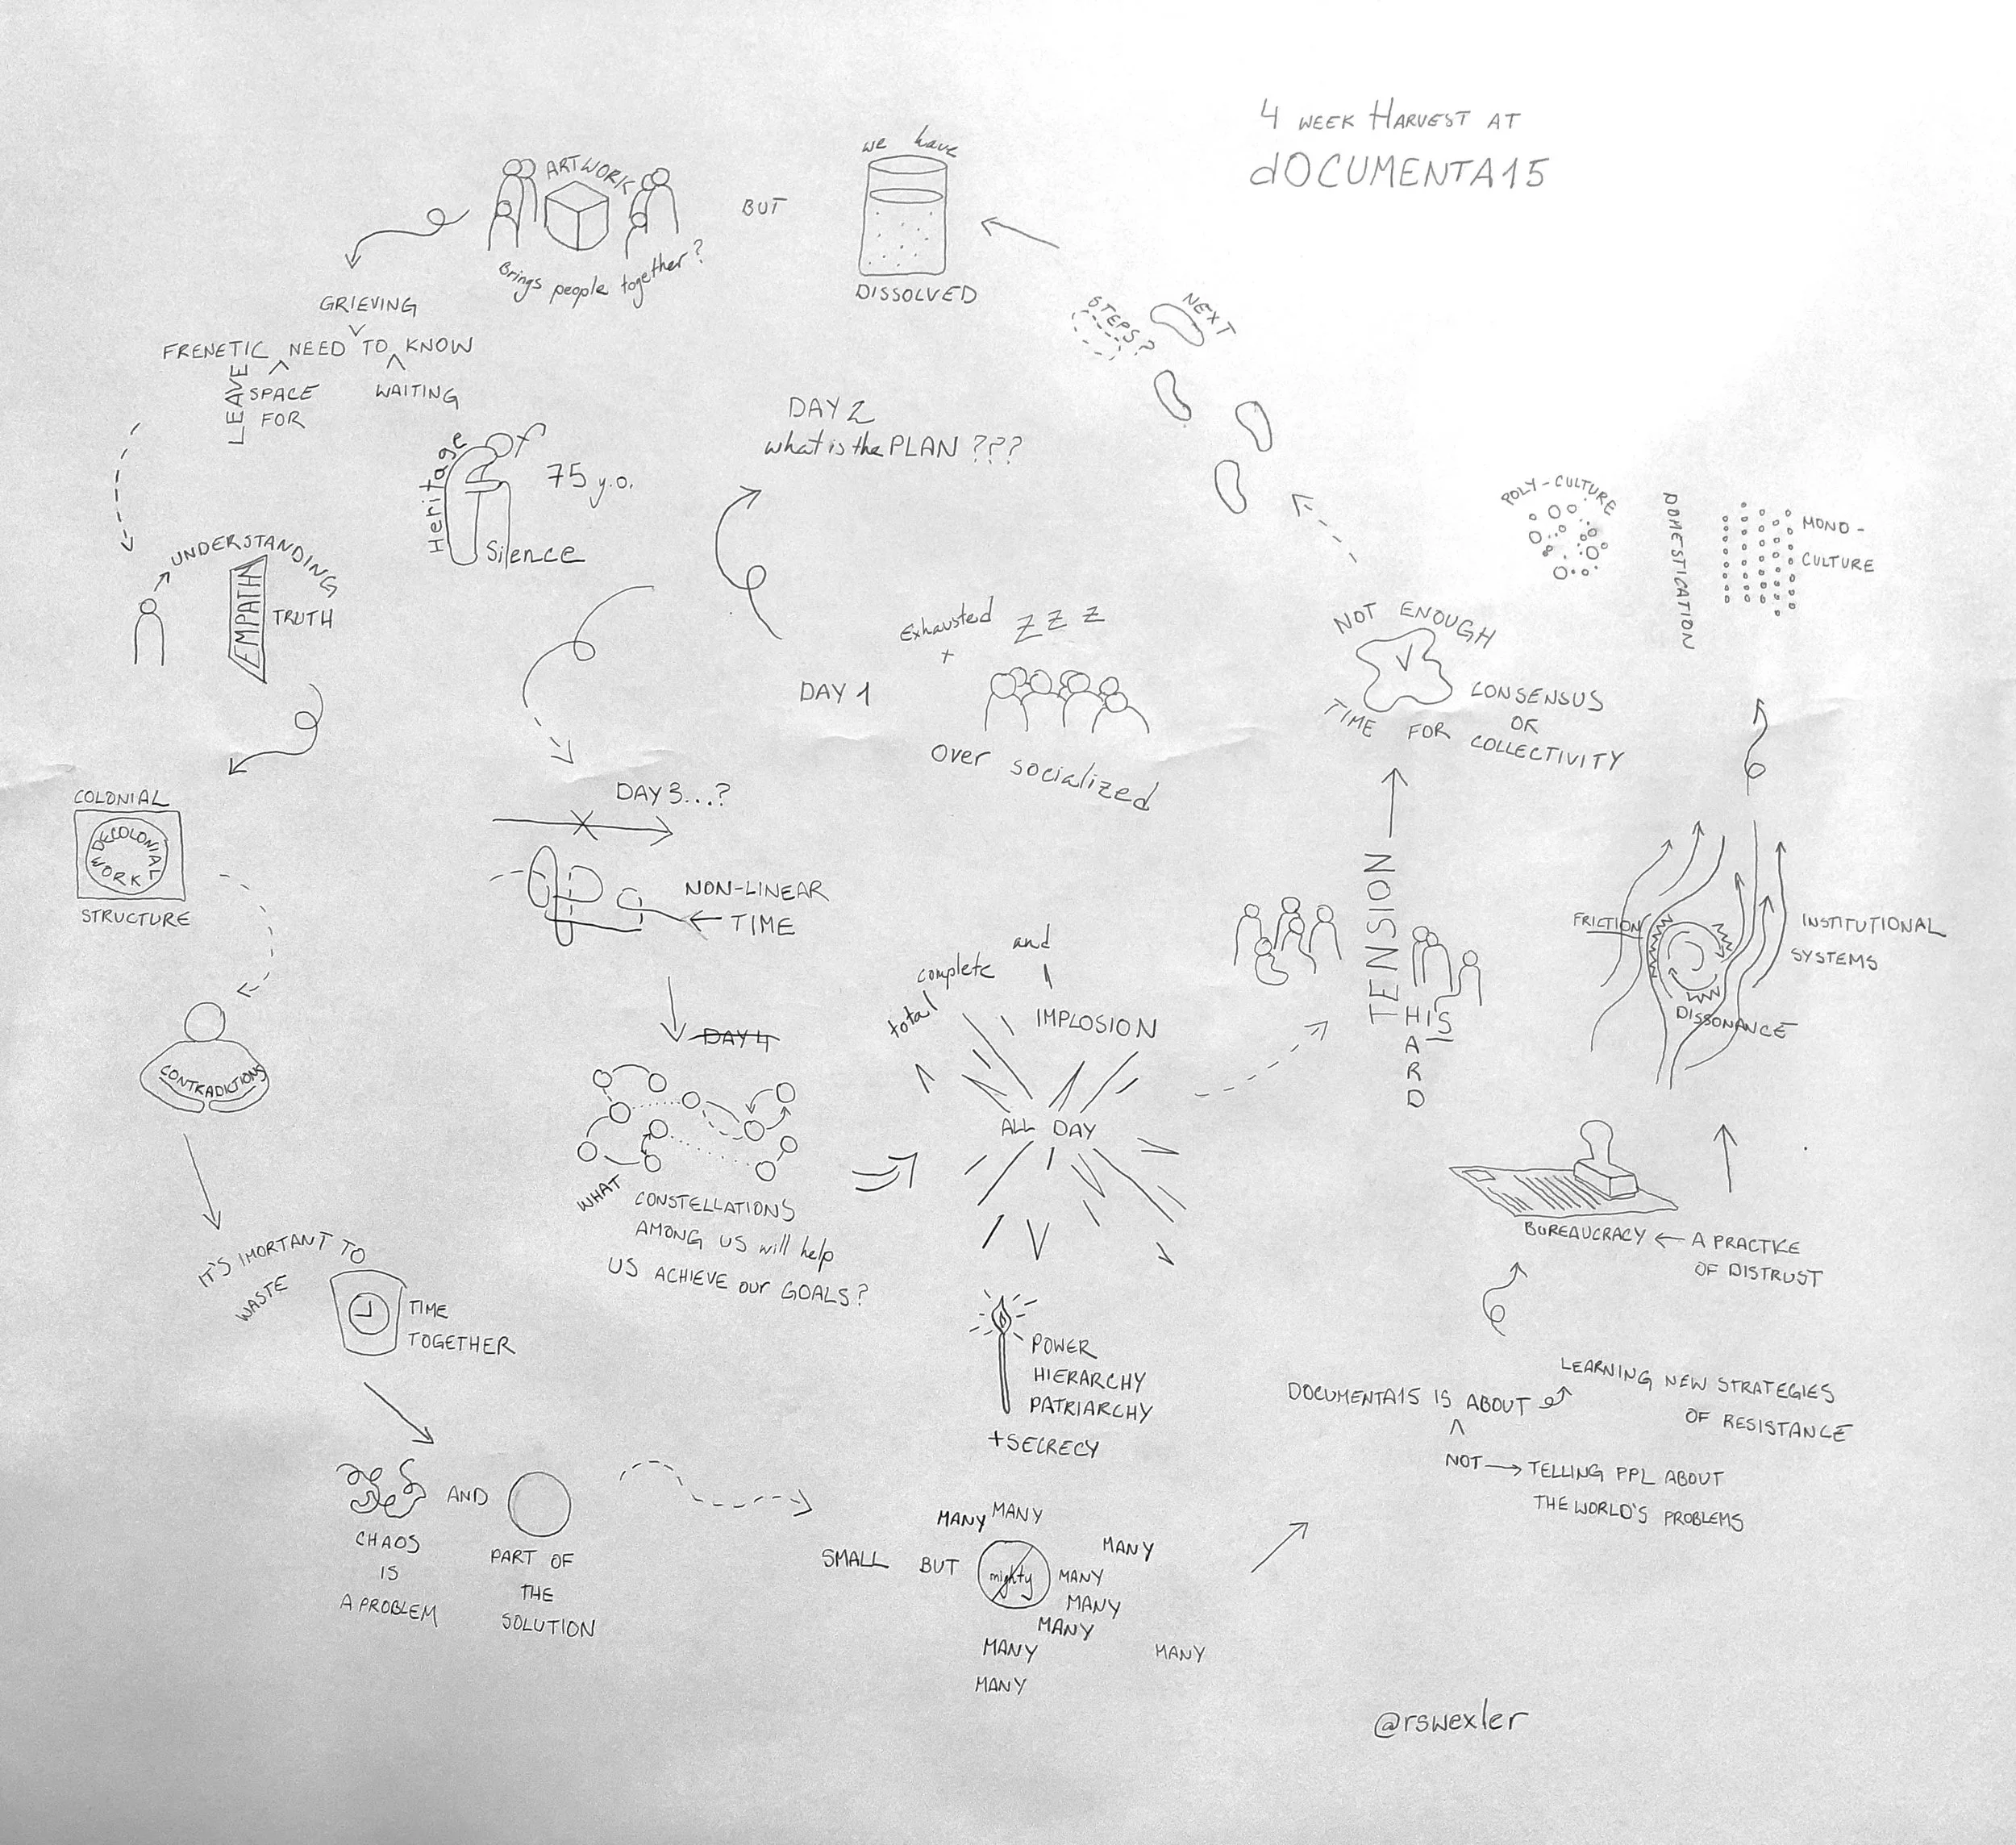 4 WEEK HARVEST AT
dOCUMENTA15
DAY 1
Exhausted
+
Z Z Z
Over socialized
DAY 2
what is the PLAN ???
DAY 3...?
NON-LINEAR
TIME
DAY 4
WHAT CONSTELLATIONS
AMONG US will help
US ACHIEVE our GOALS?
total complete and
IMPLOSION
ALL DAY
POWER
HIERARCHY
PATRIARCHY
+SECRECY
TENSION
THIS
HARD
NOT ENOUGH
TIME FOR
CONSENSUS
OR
COLLECTIVITY
NEXT
STEPS?
we have
DISSOLVED
BUT
ARTWORK
Brings people together?
GRIEVING
FRENETIC NEED TO KNOW
LEAVE
SPACE
FOR
WAITING
Heritage of
75 y.o.
Silence
UNDERSTANDING
EMPATH
TRUTH
COLONIAL
DECOLONIAL
WORK
STRUCTURE
CONTRADICTIONS
IT'S IMORTANT TO
WASTE
TIME
TOGETHER
AND
CHAOS
IS
A PROBLEM
PART OF
THE
SOLUTION
SMALL BUT mighty
MANY MANY
MANY
MANY
MANY
MANY
MANY
MANY
MANY
DOCUMENTA15 IS ABOUT
LEARNING NEW STRATEGIES
OF RESISTANCE
NOT
TELLING PPL ABOUT
THE WORLD'S PROBLEMS
BUREAUCRACY
A PRACTICE
OF DISTRUST
FRICTION
INSTITUTIONAL
SYSTEMS
DISSONANCE
POLY-CULTURE
DOMESTICATION
MONO-
CULTURE
@rswexler